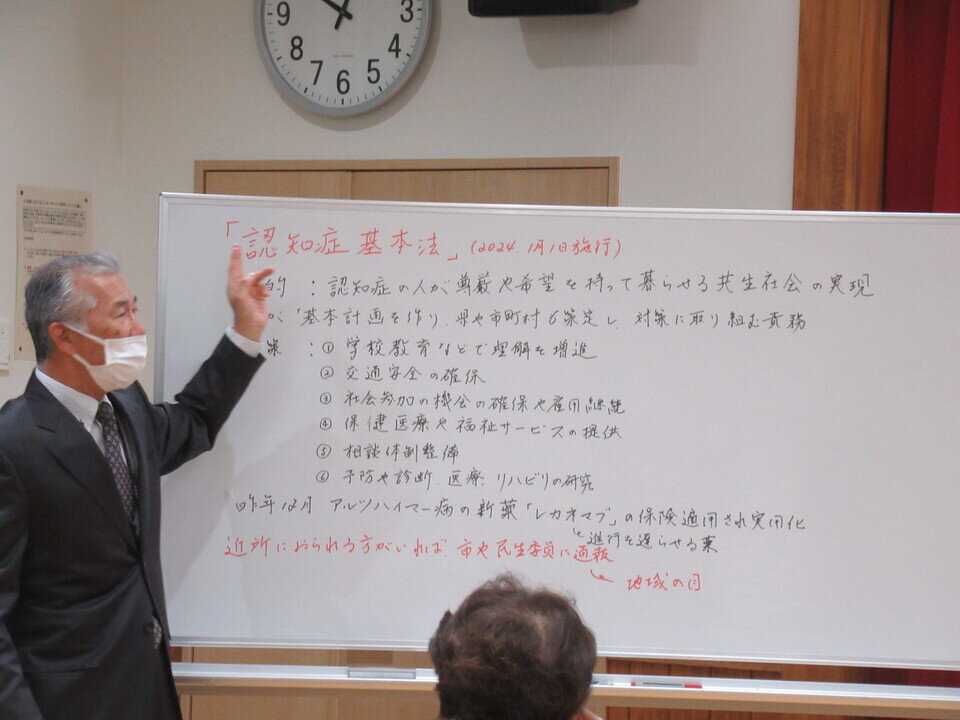 9
8
7
6
5
4
3
「認知症基本法」(2024.1月1日施行)
的 : 認知症の人が尊厳や希望を持って暮らせる共生社会の実現
が「基本計画を作り、県や市町村も策定し、対策に取り組む責務
策 : ① 学校教育などで理解を増進
② 交通安全の確保
③ 社会参加の機会の確保や雇用継続
④ 保健医療や福祉サービスの提供
⑤ 相談体制整備
⑥ 予防や診断、医療、リハビリの研究
昨年12月 アルツハイマー病の新薬「レカネマブ」の保険適用され実用化
進行を遅らせる薬
近所におられる方がいれば、市や民生委員に通報
地域の目